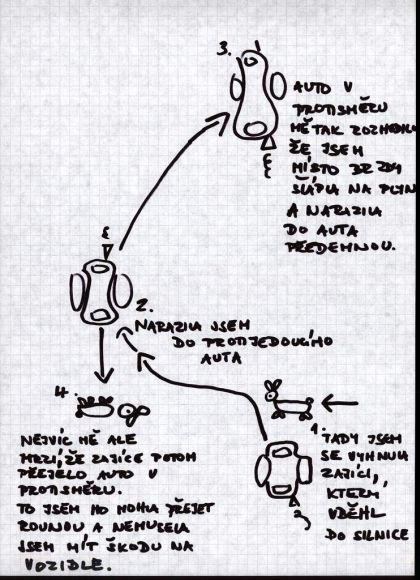 3.
AUTO V
PROTISMĚRU
MĚ TAK ROZHODILO
ŽE JSEM
MÍSTO BRZDY
ŠLÁPLA NA PLYN
A NARAZILA
DO AUTA
PŘEDEMNOU.
2.
NARAZILA JSEM
DO PROTIJEDOUCÍHO
AUTA
4.
NEJVÍC MĚ ALE
MRZÍ, ŽE ZAJÍCE POTOM
PŘEJELO AUTO V
PROTISMĚRU.
TO JSEM HO MOHLA PŘEJET
ROVNOU A NEMUSELA
JSEM MÍT ŠKODU NA
VOZIDLE.
1.
TADY JSEM
SE VYHNULA
ZAJÍCI,
KTERÝ
VBĚHL
DO SILNICE